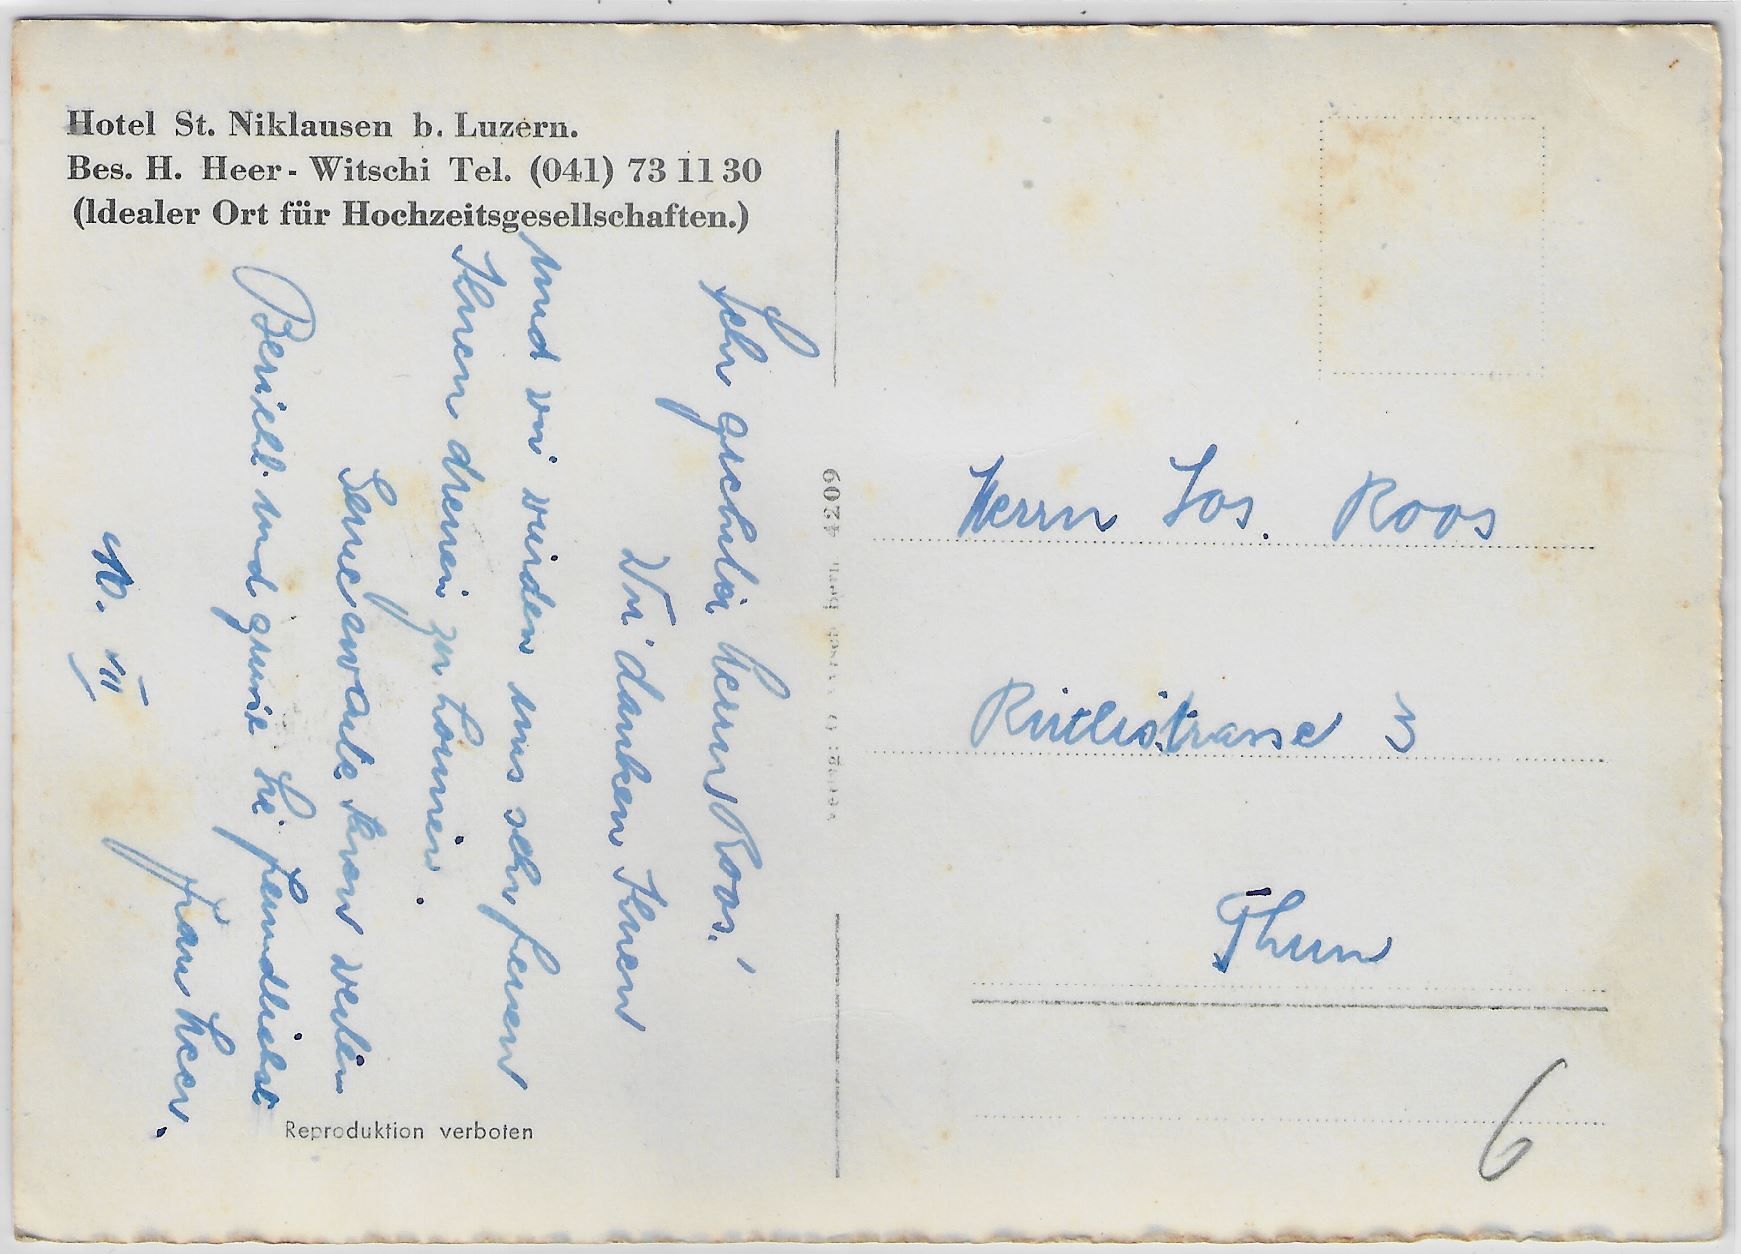 Hotel St. Niklausen b. Luzern.
Bes. H. Heer - Witschi Tel. (041) 73 11 30
(Idealer Ort für Hochzeitsgesellschaften.)
Sehr geehrter Herr Roos!
Wir danken Ihnen
und wir würden uns sehr freuen
Ihnen dienen zu können.
Gerne erwarte Ihren werten
Bericht und grüsse Sie freundlichst
Frau Heer.
10. VII
6024 4209
Reproduktion verboten
Herrn Jos. Roos
Rütlistrasse 3
Thun
6